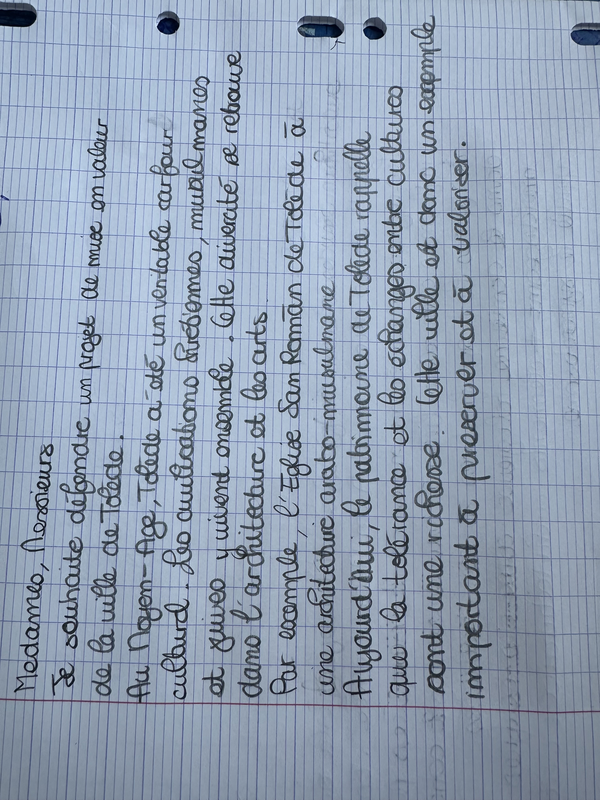 Medames, Messieurs
Je souhaite défendre un projet de mise en valeur
de la ville de Tolede.
Au Moyen-Age, Tolède a été un veritable carfour
culturel. Les civilisations chrétiennes, musulmanes
et juives y vivent ensemble. Cette diversité se retrouve
dans l'architecture et les arts.
Par exemple, l'Eglise San Román de Tolède à
une architecture arabo-musulmane
Aujourd'hui, le patrimoine de Tolede rappelle
que la tolérance et les échanges entre cultures
sont une richesse. Cette ville est donc un exemple
important à preserver et à valoriser.